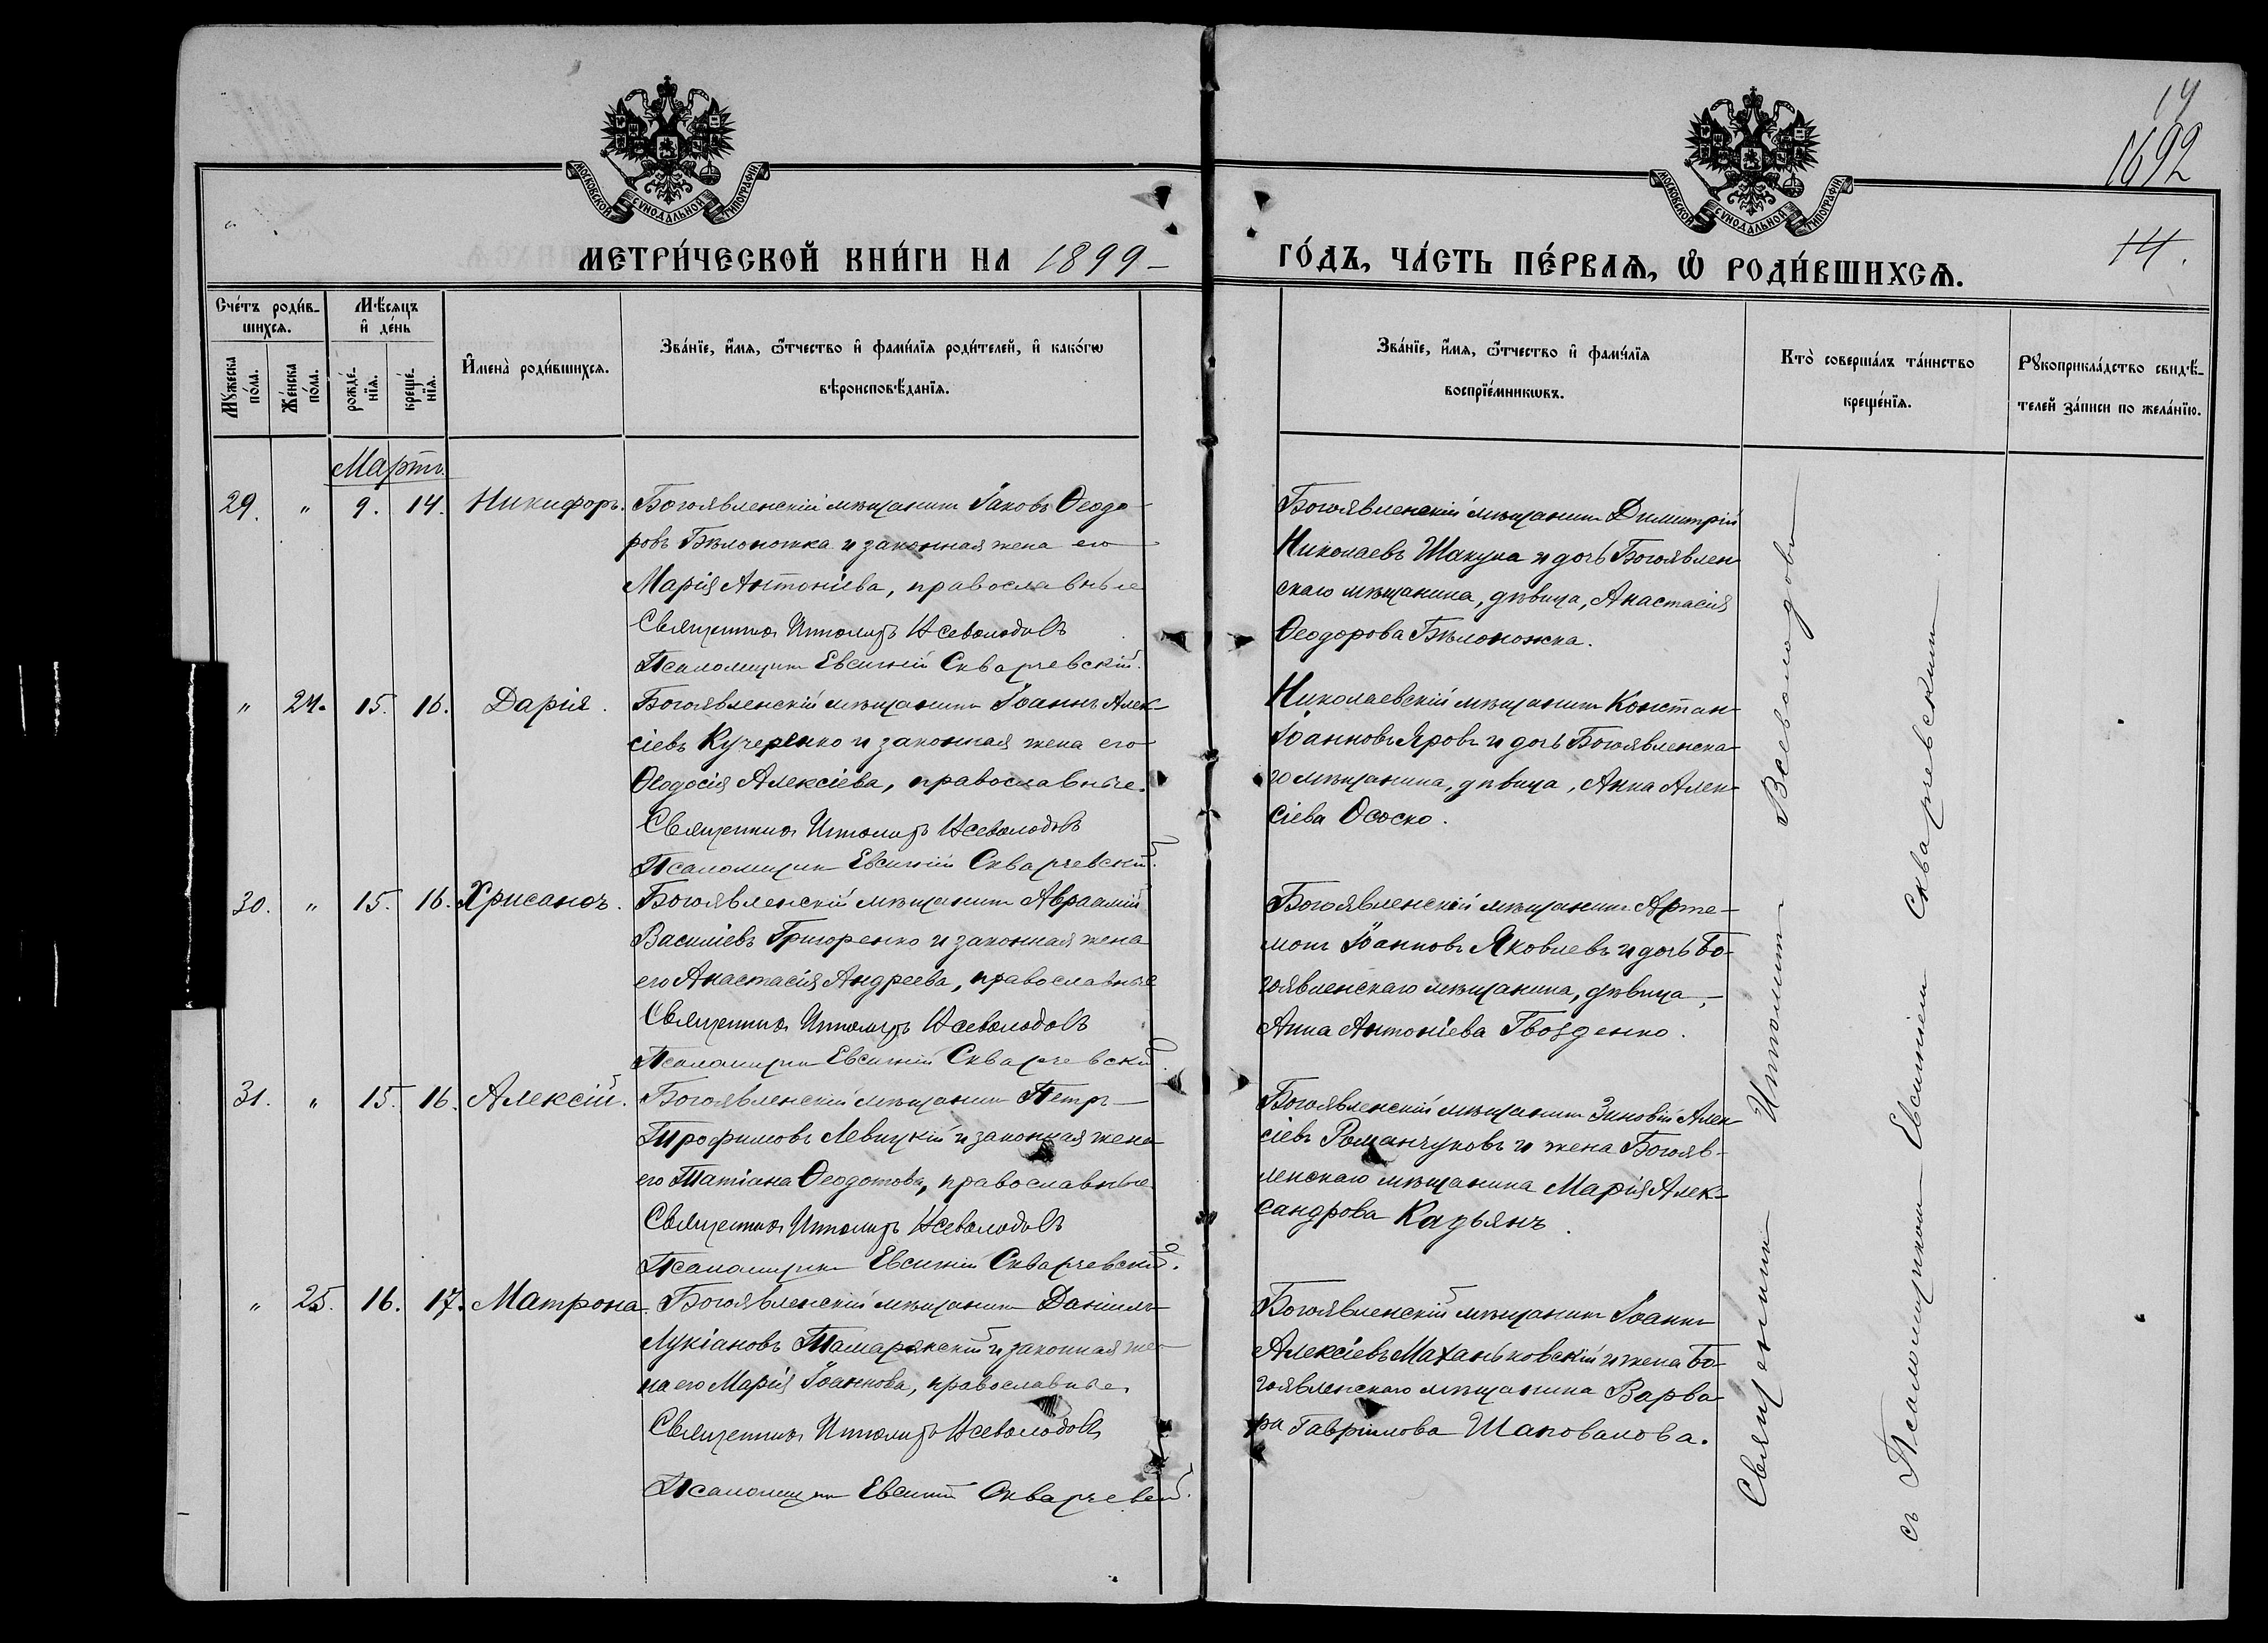 19
1692
14.
МОСКОВСКОЙ СѴНОДАЛЬНОЙ ТИПОГРАФІИ.
МОСКОВСКОЙ СѴНОДАЛЬНОЙ ТИПОГРАФІИ.
МЕТРИ́ЧЕСКОЙ КНИ́ГИ НА 1899 –
ГО́ДЪ, ЧА́СТЬ ПЕ́РВАѦ, Ѽ РОДИ́ВШИХСѦ.
Сче́тъ роди́в-
шихсѧ.
Мꙋ́жеска по́ла.
Же́нска по́ла.
Мѣ́сяцъ
и҆ де́нь
рожде́-
нїѧ.
креще́-
нїѧ.
И҆мена̀ роди́вшихсѧ.
Зва́нїе, и҆́мѧ, ѻ҆́тчество и҆ фами́лїѧ роди́телей, и҆ како́гѡ
вѣроисповѣ́данїѧ.
Зва́нїе, и҆́мѧ, ѻ҆́тчество и҆ фами́лїѧ
воспрїе́мникѡвъ.
Кто̀ соверша́лъ та́инство
креще́нїѧ.
Рꙋкоприкла́дство свидѣ́-
телей за́писи по жела́нїю.
Мартъ.
29. " 9. 14. Никифоръ. Богоявленскій мѣщанинъ Іаковъ Ѳеодо-
ровъ Бѣлоножка и законная жена его
Марія Антоніева, православные
Священникъ Ипполитъ Всеволодовъ
Псаломщикъ Евсигній Скварчевскій.
Богоявленскій мѣщанинъ Димитрій
Николаевъ Шакула и дочь Богоявлен
скаго мѣщанина, дѣвица, Анастасія
Ѳеодорова Бѣлоножка.
" 24. 15. 16. Дарія. Богоявленскій мѣщанинъ Іоаннъ Алек-
сіевъ Кучеренко и законная жена его
Ѳеодосія Алексіева, православные.
Священникъ Ипполитъ Всеволодовъ
Псаломщикъ Евсигній Скварчевскій.
Николаевскій мѣщанинъ Констан-
Іоанновъ Яровъ и дочь Богоявленска-
го мѣщанина, дѣвица, Анна Алек-
сіева Ососко.
30. " 15. 16. Хрисанѳъ. Богоявленскій мѣщанинъ Авраамій
Василіевъ Григоренко и законная жена
его Анастасія Андреева, православные
Священникъ Ипполитъ Всеволодовъ
Псаломщикъ Евсигній Скварчевскій.
Богоявленскій мѣщанинъ Арте-
монъ Іоанновъ Яковлевъ и дочь Бо-
гоявленскаго мѣщанина, дѣвица, –
Анна Антоніева Гвозденко.
31. " 15. 16. Алексій. Богоявленскій мѣщанинъ Петръ –
Трофимовъ Левицкій и законная жена
его Татіана Ѳеодотова, православные
Священникъ Ипполитъ Всеволодовъ
Псаломщикъ Евсигній Скварчевскій.
Богоявленскій мѣщанинъ Зиновій Алек-
сіевъ Романчуковъ и жена Богояв-
ленскаго мѣщанина Марія Алек-
сандрова Казьянъ.
" 25. 16. 17. Матрона. Богоявленскій мѣщанинъ Даніилъ
Лукіановъ Тамарянскій и законная же-
на его Марія Іоаннова, православные
Священникъ Ипполитъ Всеволодовъ
Псаломщикъ Евсигній Скварчевскій.
Богоявленскій мѣщанинъ Іоаннъ
Алексіевъ Маханьковскій и жена Бо-
гоявленскаго мѣщанина Варва-
ра Гавріилова Шаповалова.
Священникъ Ипполитъ Всеволодовъ
съ Псаломщикомъ Евсигніемъ Скварчевскимъ